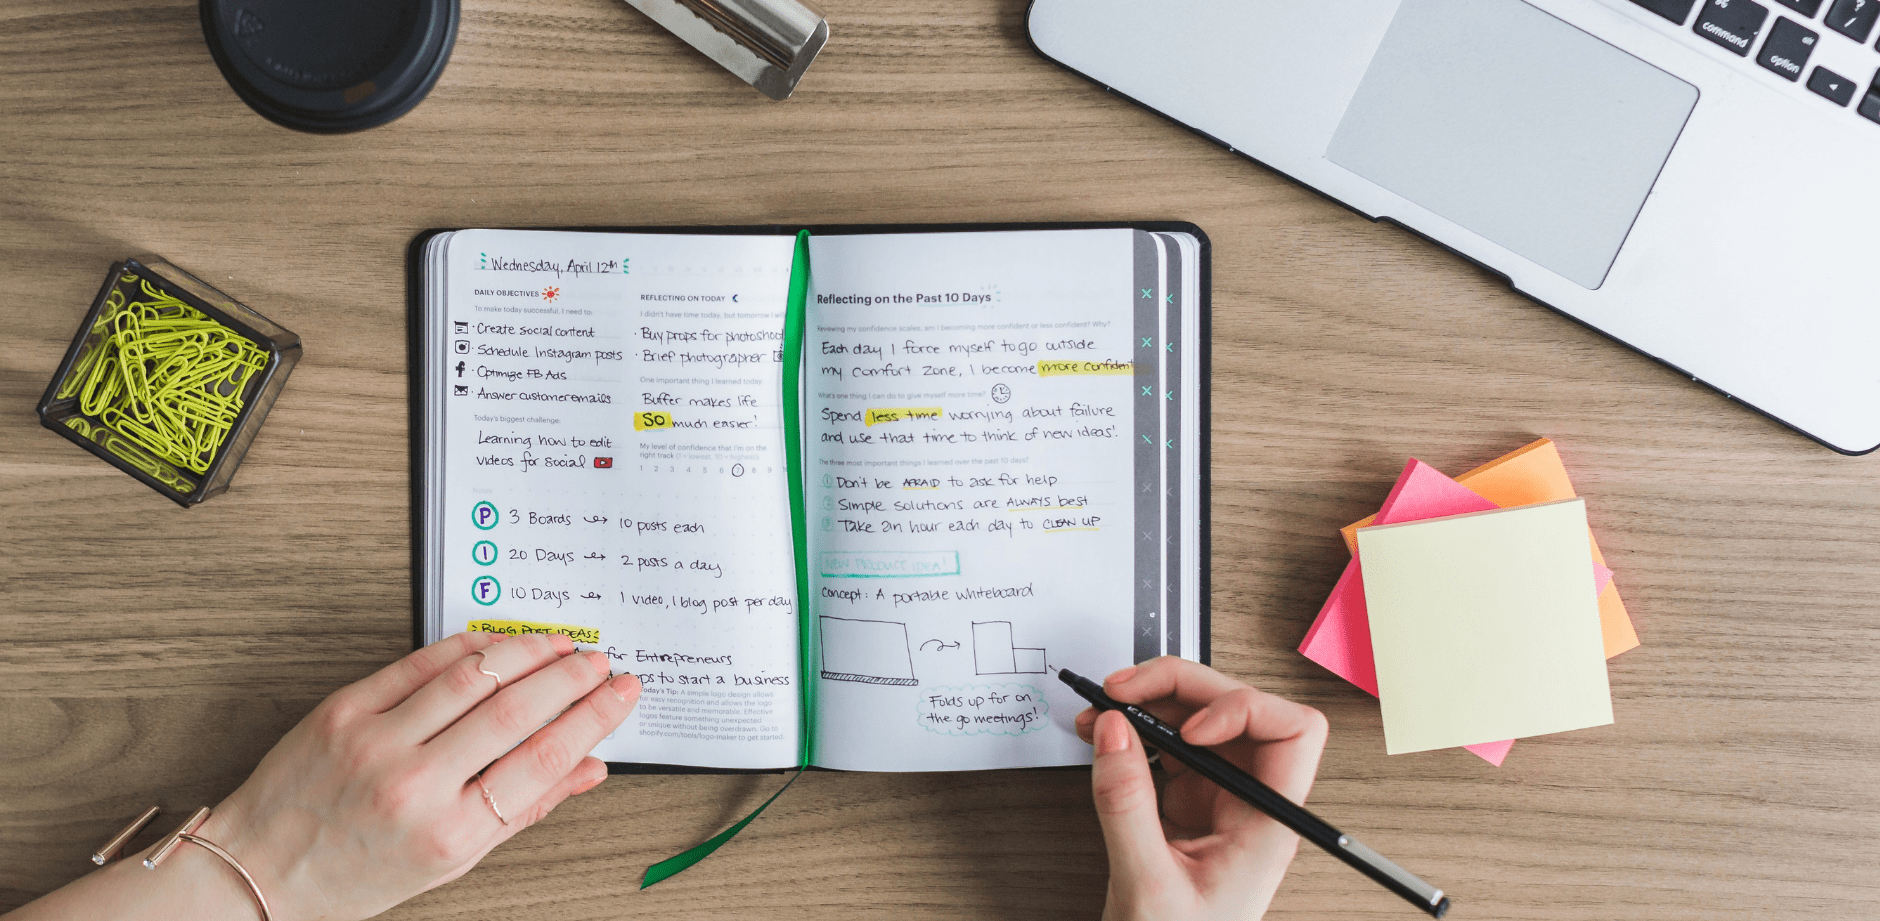 Wednesday, April 12th
DAILY OBJECTIVES
To make today successful, I need to:
· Create social content
· Schedule Instagram posts
· Optimize FB Ads
· Answer customer emails
Today's biggest challenge:
Learning how to edit
videos for social
REFLECTING ON TODAY
I didn't have time today, but tomorrow I will
· Buy props for photoshoot
· Brief photographer
One important thing I learned today:
Buffer makes life
SO much easier!
My level of confidence that I'm on the
right track (1 = lowest, 10 = highest)
1 2 3 4 5 6 7 8 9
Notes
P 3 Boards → 10 posts each
I 20 Days → 2 posts a day
F 10 Days → 1 video, 1 blog post per day
> BLOG POST IDEAS <
for Entrepreneurs
to start a business
Today's Tip: A simple logo design allows
for easy recognition and allows the logo
to be versatile and memorable. Effective
logos feature something unexpected
or unique without being overdrawn. Go to
shopify.com/tools/logo-maker to get started.
Reflecting on the Past 10 Days
Reviewing my confidence scales, am I becoming more confident or less confident? Why?
Each day I force myself to go outside
my comfort zone, I become more confident
What's one thing I can do to give myself more time?
Spend less time worrying about failure
and use that time to think of new ideas!
The three most important things I learned over the past 10 days?
1 Don't be AFRAID to ask for help
2 Simple solutions are ALWAYS best
3 Take an hour each day to CLEAN UP
NEW PRODUCT IDEA!
Concept: A portable whiteboard
Folds up for on
the go meetings!
command
alt
option